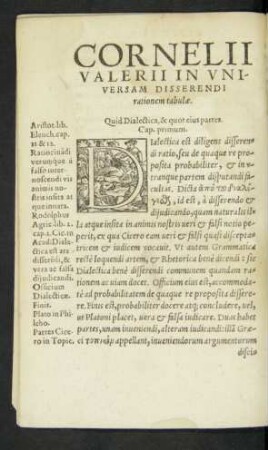 CORNELII
VALERII IN VNI-
VERSAM DISSERENDI
rationem tabulæ.
Quid Dialectica, & quot eius partes.
Cap. primum.
Aristot. lib.
Elench. cap.
Ratiocinādi
verumque à
falso inter-
noscendi vis
animis no-
stris insita at
que innata.
Rodolphus
Agric. lib. 2.
cap. 2. Cic. in
Acad. Diale-
ctica est ars
disserēdi, &
vera ac falsa
dijudicandi.
Officium
Dialecticæ.
Finis.
Plato in Phi-
lebo.
Partes Cice-
ro in Topic.
DIalectica est diligens disseren-
di ratio, seu de quaque re pro-
posita probabiliter, & in v-
tranque partem disputandi fa-
cultas. Dicta ἀπὸ τοῦ διαλέ-
γεσθαι, id est, à disserendo &
dijudicando: quam naturalis il-
la atque insita in animis nostris veri & falsi notio pe-
perit, ex quo Cicero eam veri & falsi quasi discepta-
tricem & iudicem vocauit. Vt autem Grammatica
rectè loquendi artem, & Rhetorica benè dicendi: sic
Dialectica benè disserendi communem quandam ra-
tionem ac viam docet. Officium eius est, accommo-
datè ad probabilitatem de quaque re proposita dissere-
re. Finis est, probabiliter docere atq; concludere, vel,
vt Platoni placet, vera & falsa iudicare. Duas habet
partes, vnam inueniendi, alteram iudicandi: illā Græ-
ci τοπικὴν appellant, inueniendorum argumentorum
disci-